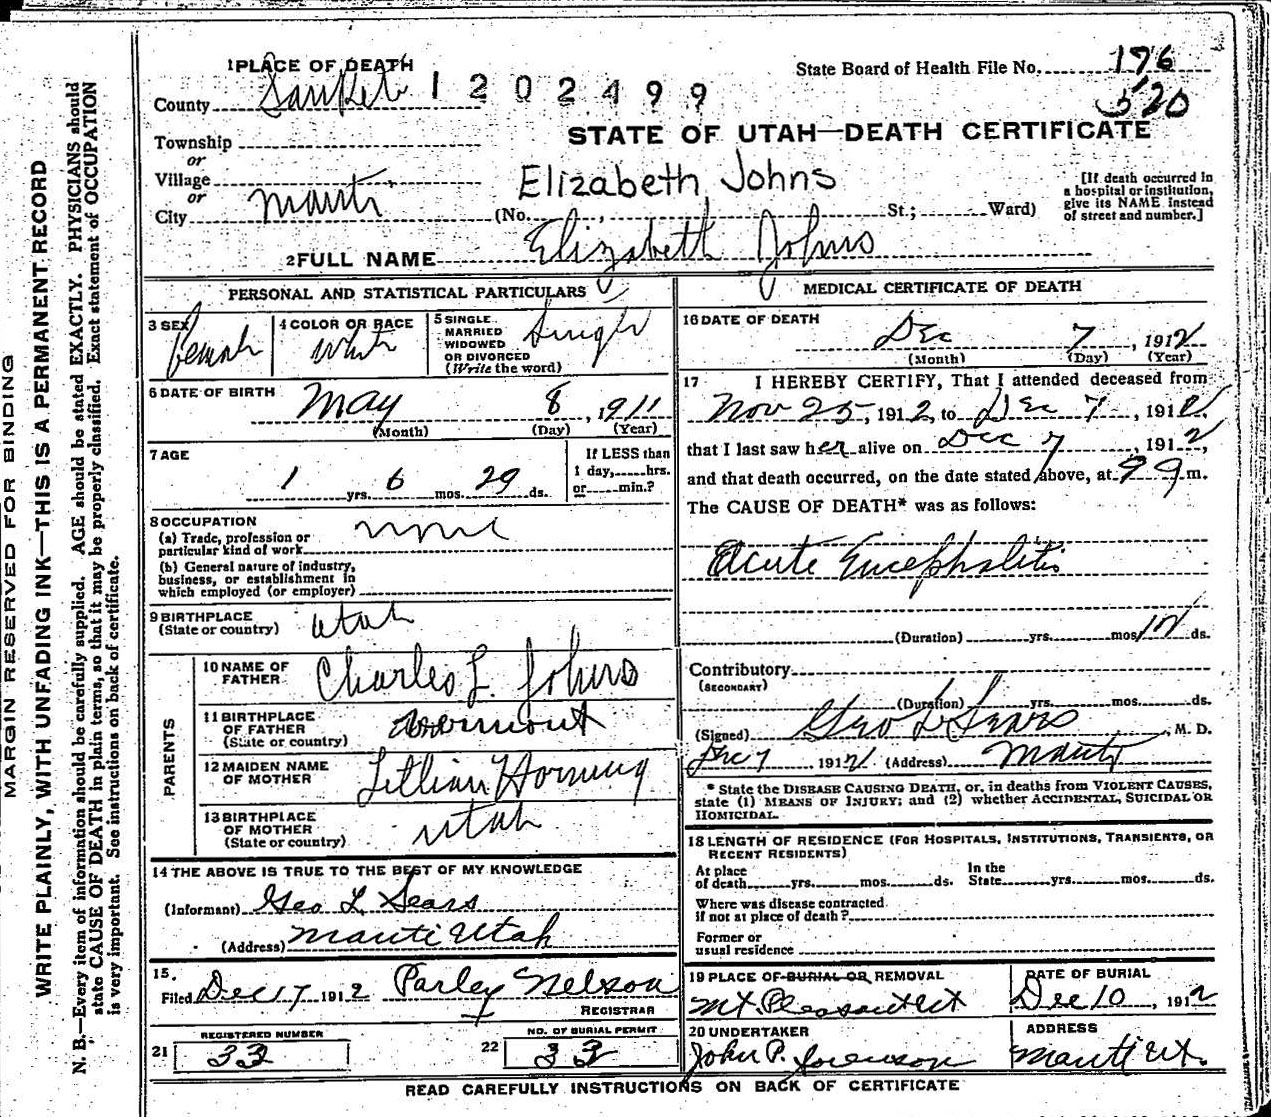 MARGIN RESERVED FOR BINDING
WRITE PLAINLY, WITH UNFADING INK—THIS IS A PERMANENT RECORD
N. B.—Every item of information should be carefully supplied. AGE should be stated EXACTLY. PHYSICIANS should
state CAUSE OF DEATH in plain terms, so that it may be properly classified. Exact statement of OCCUPATION
is very important. See instructions on back of certificate.
1 PLACE OF DEATH
County Sanpete
1202499
State Board of Health File No. 176
520
Township
or
Village
or
City Manti
STATE OF UTAH—DEATH CERTIFICATE
Elizabeth Johns
(No. , St.; Ward)
[If death occurred in
a hospital or institution,
give its NAME instead
of street and number.]
2 FULL NAME Elizabeth Johns
PERSONAL AND STATISTICAL PARTICULARS
3 SEX Female
4 COLOR OR RACE White
5 SINGLE
MARRIED
WIDOWED
OR DIVORCED
(Write the word) Single
6 DATE OF BIRTH May 8, 1911
(Month) (Day) (Year)
7 AGE 1 yrs. 6 mos. 29 ds.
If LESS than
1 day, hrs.
or min.?
8 OCCUPATION none
(a) Trade, profession or
particular kind of work
(b) General nature of industry,
business, or establishment in
which employed (or employer)
9 BIRTHPLACE
(State or country) Utah
PARENTS
10 NAME OF
FATHER Charles L. Johns
11 BIRTHPLACE
OF FATHER
(State or country) Vermont
12 MAIDEN NAME
OF MOTHER Lillian Hornung
13 BIRTHPLACE
OF MOTHER
(State or country) Utah
14 THE ABOVE IS TRUE TO THE BEST OF MY KNOWLEDGE
(Informant) Geo L Sears
(Address) Manti Utah
15.
Filed Dec 17 1912 Parley Nelson
REGISTRAR
REGISTERED NUMBER
21 33
NO. OF BURIAL PERMIT
22 33
MEDICAL CERTIFICATE OF DEATH
16 DATE OF DEATH
Dec 7, 1912
(Month) (Day) (Year)
17 I HEREBY CERTIFY, That I attended deceased from
Nov 25, 1912, to Dec 7, 1912,
that I last saw her alive on Dec 7, 1912,
and that death occurred, on the date stated above, at 9 a m.
The CAUSE OF DEATH* was as follows:
Acute Encephalitis
(Duration) yrs. mos. 12 ds.
Contributory
(SECONDARY)
(Duration) yrs. mos. ds.
(Signed) Geo L Sears, M. D.
Dec 7 1912 (Address) Manti
* State the DISEASE CAUSING DEATH, or, in deaths from VIOLENT CAUSES,
state (1) MEANS OF INJURY; and (2) whether ACCIDENTAL, SUICIDAL OR
HOMICIDAL.
18 LENGTH OF RESIDENCE (FOR HOSPITALS, INSTITUTIONS, TRANSIENTS, OR
RECENT RESIDENTS)
At place
of death yrs. mos. ds.
In the
State yrs. mos. ds.
Where was disease contracted
if not at place of death?
Former or
usual residence
19 PLACE OF BURIAL OR REMOVAL
Mt. Pleasant Ut
DATE OF BURIAL
Dec 10, 1912
20 UNDERTAKER
John P. Sorenson
ADDRESS
Manti Ut.
READ CAREFULLY INSTRUCTIONS ON BACK OF CERTIFICATE